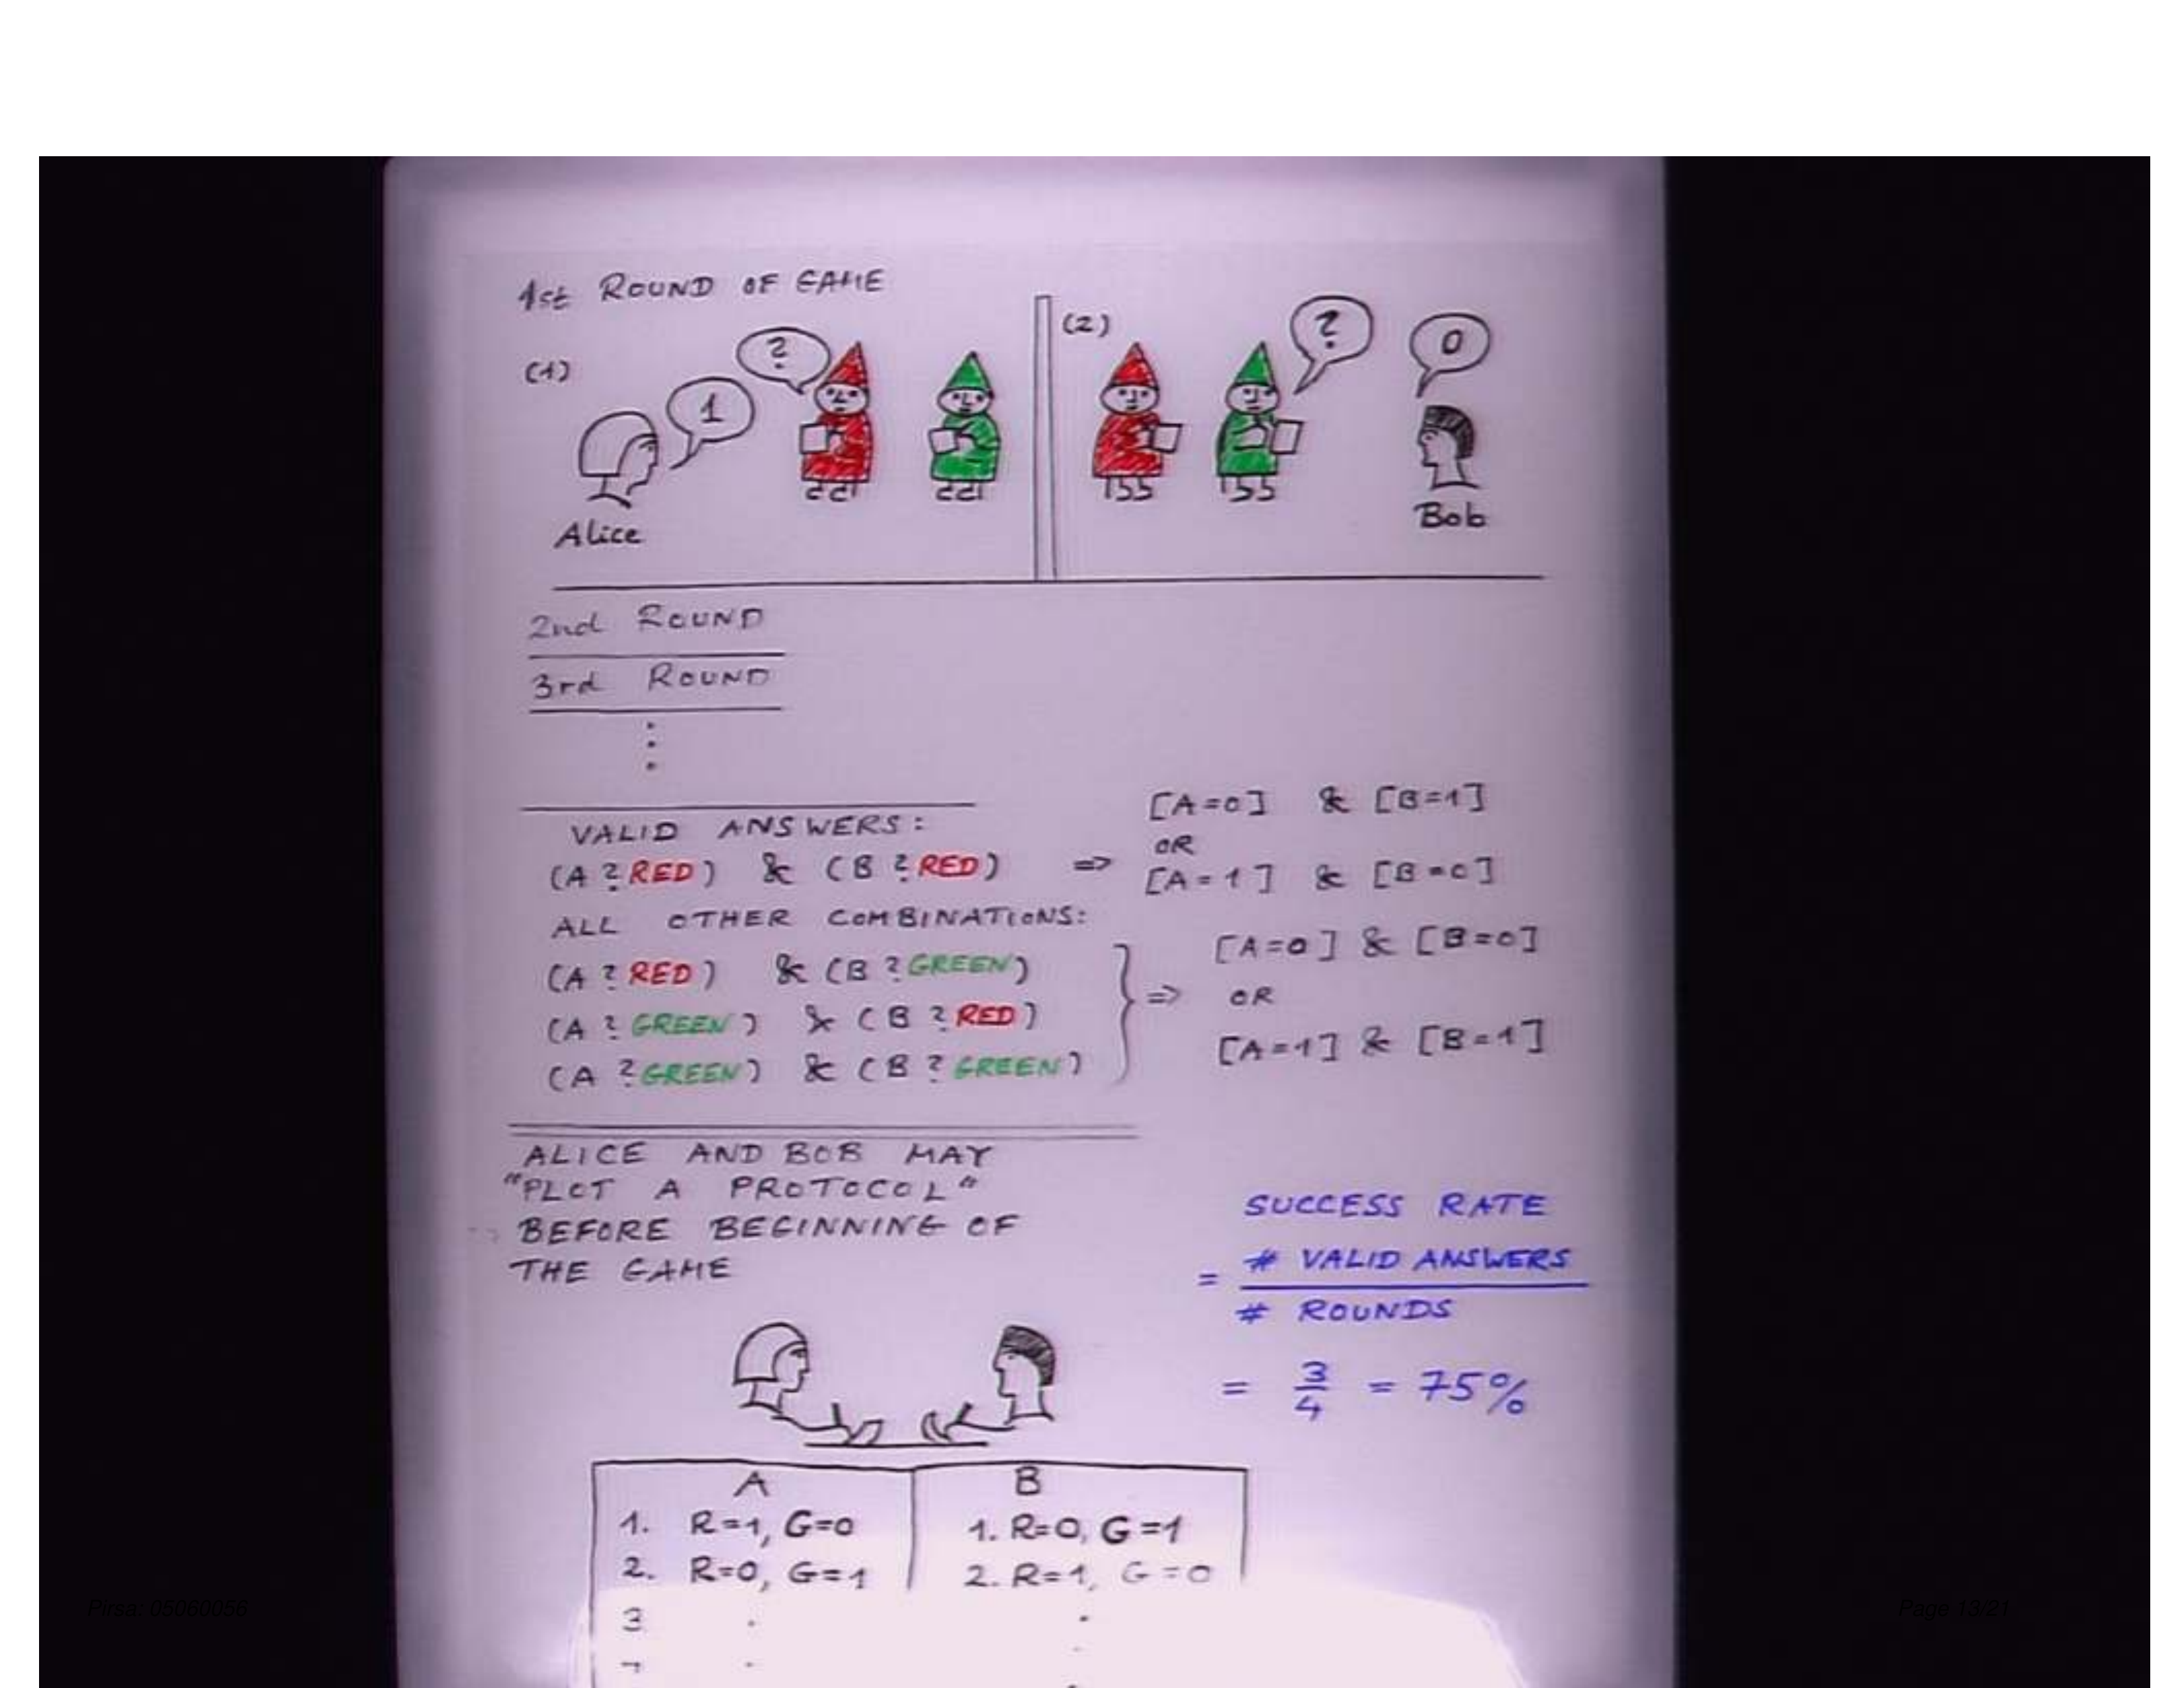 1st ROUND OF GAME
(1)
?
1
Alice
(2)
?
0
Bob
2nd ROUND
3rd ROUND
VALID ANSWERS:
(A ? RED) & (B ? RED) => [A=0] & [B=1]
OR
[A=1] & [B=0]
ALL OTHER COMBINATIONS:
(A ? RED) & (B ? GREEN)
(A ? GREEN) & (B ? RED)
(A ? GREEN) & (B ? GREEN)
=>
[A=0] & [B=0]
OR
[A=1] & [B=1]
ALICE AND BOB MAY
"PLOT A PROTOCOL"
BEFORE BEGINNING OF
THE GAME
SUCCESS RATE
= # VALID ANSWERS
# ROUNDS
= 3/4 = 75%
A B
1. R=1, G=0 1. R=0, G=1
2. R=0, G=1 2. R=1, G=0
3
Pirsa: 05060056
Page 13/21